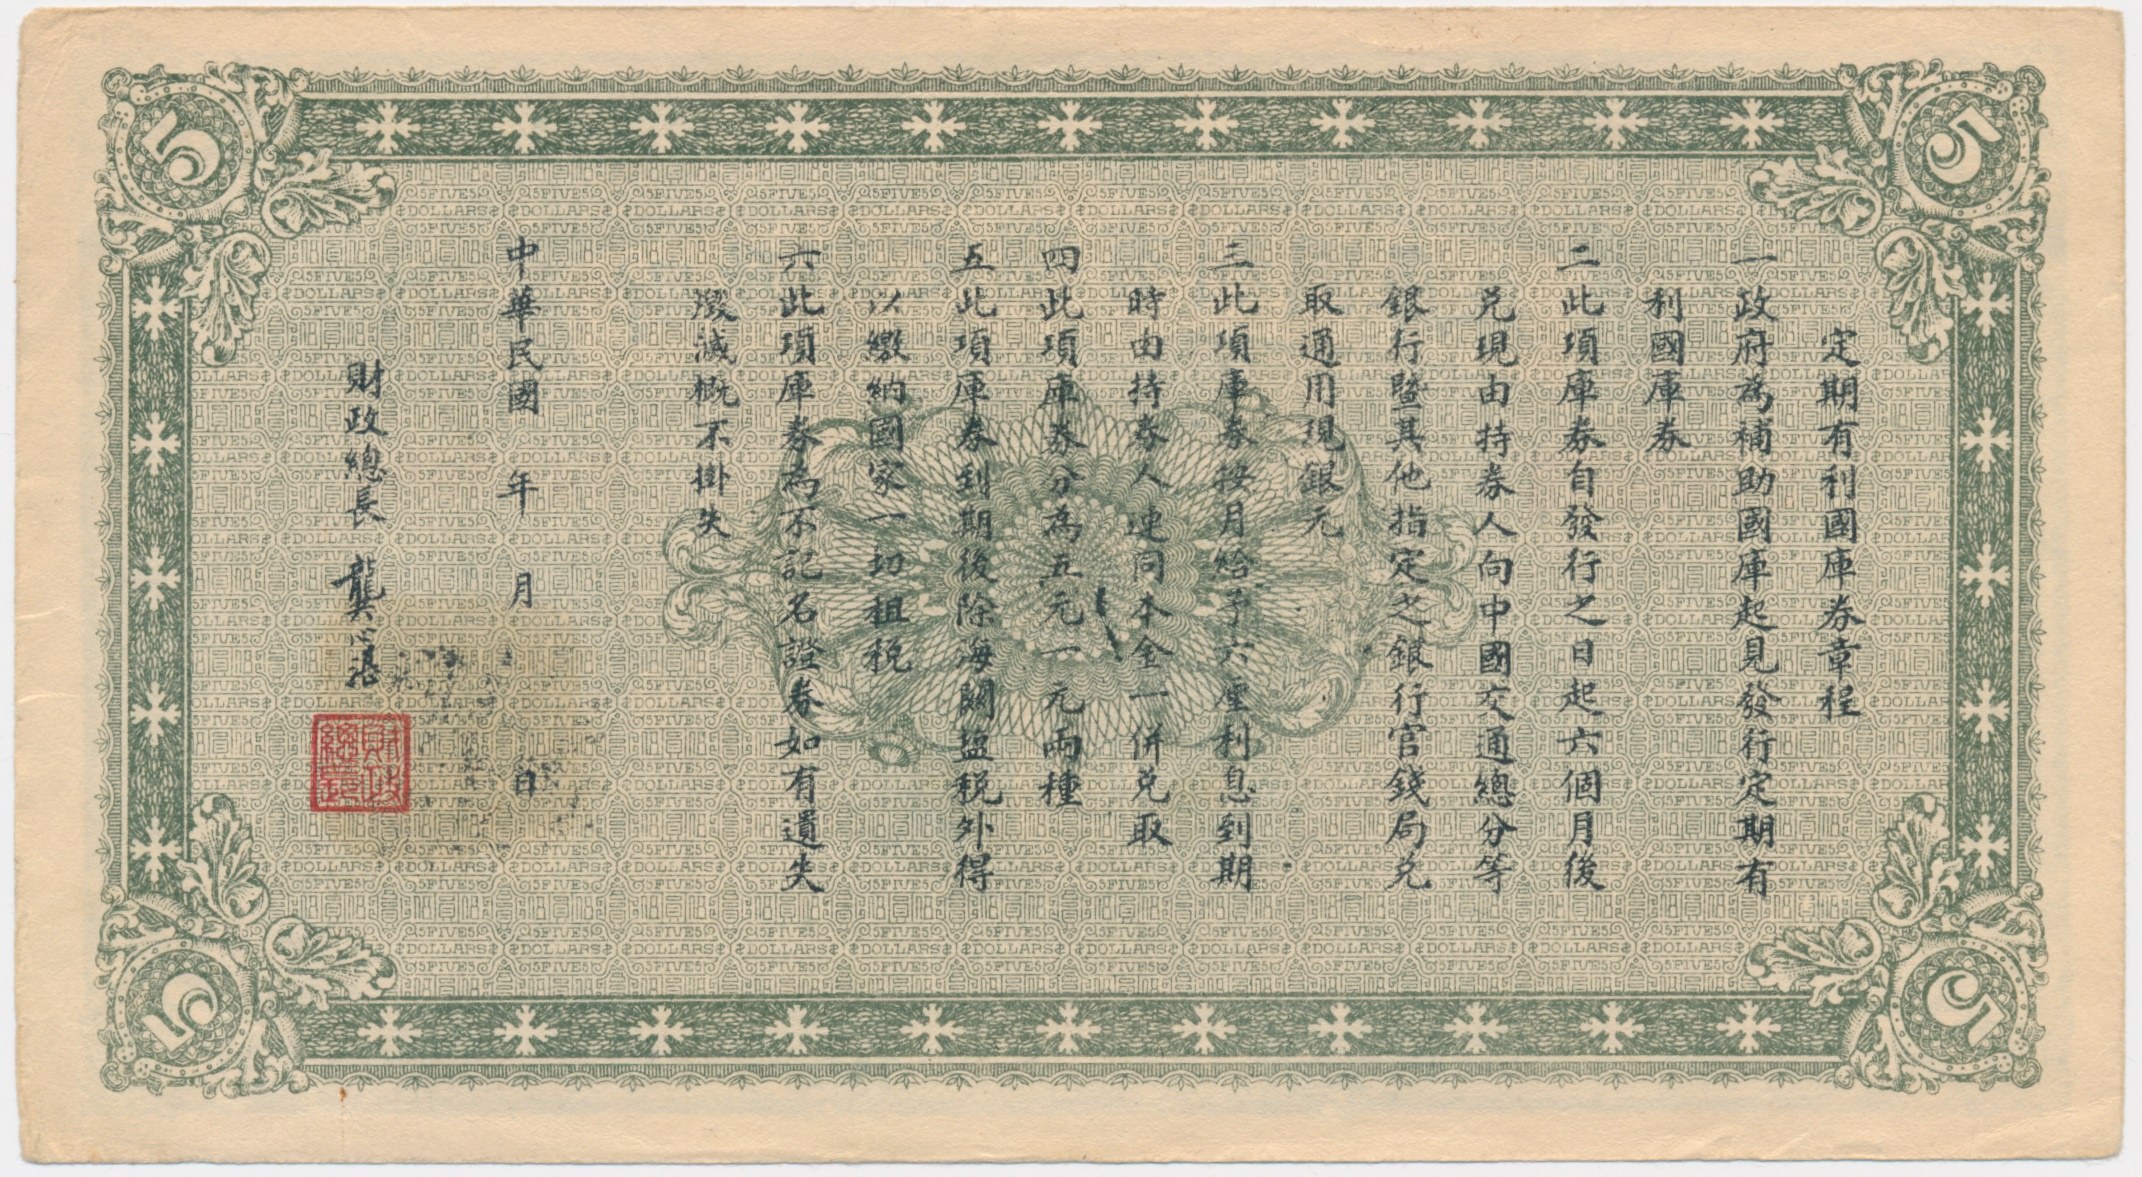 定期有利國庫券章程
一政府為補助國庫起見發行定期有
利國庫券
二此項庫券自發行之日起六個月後
兌現由持券人向中國交通總分等
銀行暨其他指定之銀行官錢局兌
取通用現銀元
三此項庫券按月給予六厘利息到期
時由持券人連同本金一併兌取
四此項庫券分為五元一元兩種
五此項庫券到期後除海關鹽稅外得
以繳納國家一切租稅
六此項庫券為不記名證券如有遺失
毀滅概不掛失
中華民國 年 月 日
財政總長 龔心湛
財政
總長
5
5
5
5
5FIVE5
DOLLARS